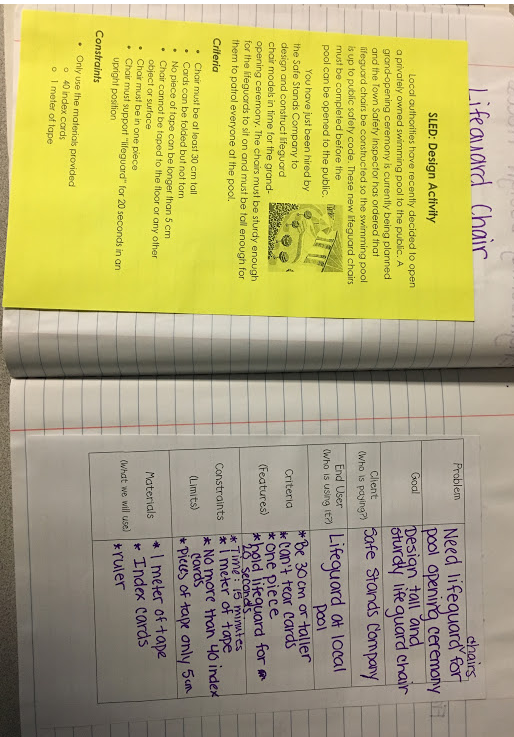 Lifeguard Chair
SLED: Design Activity
Local authorities have recently decided to open
a privately owned swimming pool to the public. A
grand-opening ceremony is currently being planned
and the Town Safety Inspector has ordered that
lifeguard chairs be constructed so the swimming pool
is up to public safety code. These new lifeguard chairs
must be completed before the
pool can be opened to the public.
You have just been hired by
the Safe Stands Company to
design and construct lifeguard
chair models in time for the grand-
opening ceremony. The chairs must be sturdy enough
for the lifeguards to sit on and must be tall enough for
them to patrol everyone at the pool.
Criteria
• Chair must be at least 30 cm tall
• Cards can be folded but not torn
• No piece of tape can be longer than 5 cm
• Chair cannot be taped to the floor or any other
object or surface
• Chair must be in one piece
• Chair must support "lifeguard" for 20 seconds in an
upright position
Constraints
• Only use the materials provided
o 40 index cards
o 1 meter of tape
Problem
Need lifeguard chairs for
pool opening ceremony
Goal
Design tall and
sturdy lifeguard chair
Client
(Who is paying?)
Safe Stands Company
End User
(Who is using it?)
Lifeguard at local
pool
Criteria
(Features)
* Be 30 cm or taller
* Can't tear cards
* one piece
* hold lifeguard for
20 seconds
Constraints
(Limits)
* Time: 15 minutes
* 1 meter of tape
* No more than 40 index
cards
* Pieces of tape only 5cm
Materials
(What we will use)
* 1 meter of tape
* Index cards
* ruler